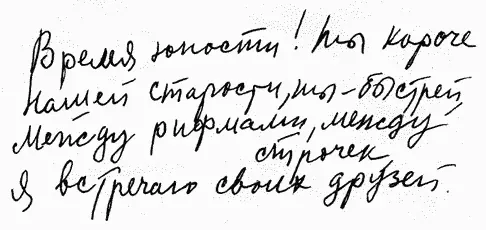 Время юности! ты короче
нашей старости, ты-быстрей
Между рифмами, между
строчек
я встречаю своих друзей.